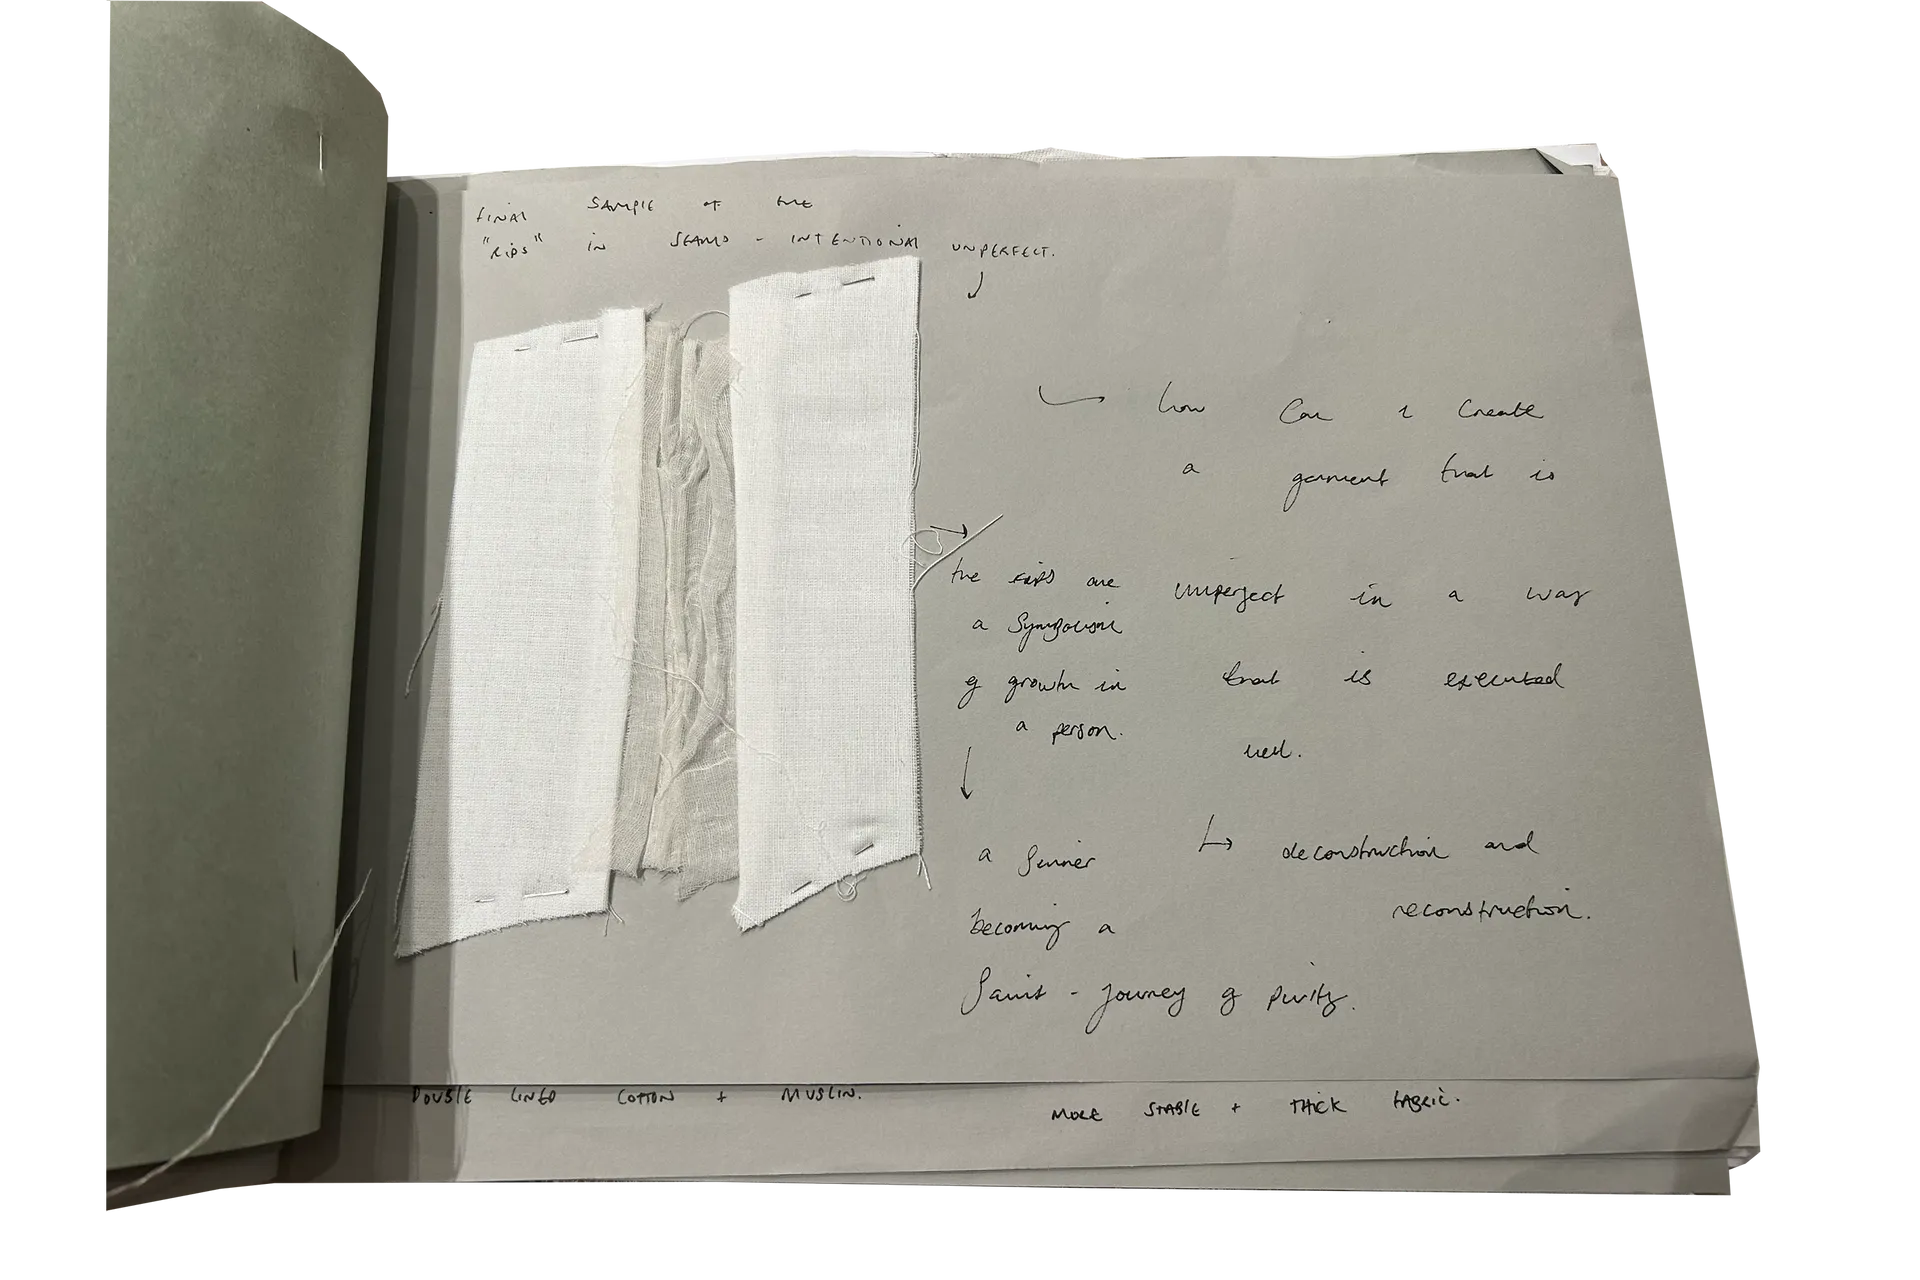 FINAL SAMPLE OF THE
"RIPS" IN SEAMS - INTENTIONAL UNPERFECT.
how can i create
a garment that is
unperfect in a way
that is executed
well.
deconstruction and
reconstruction.
the rips are
a symbolism
of growth in
a person.
a sinner
becoming a
saint - journey of purity.
DOUBLE LINED COTTON + MUSLIN.
MORE STABLE + THICK FABRIC.